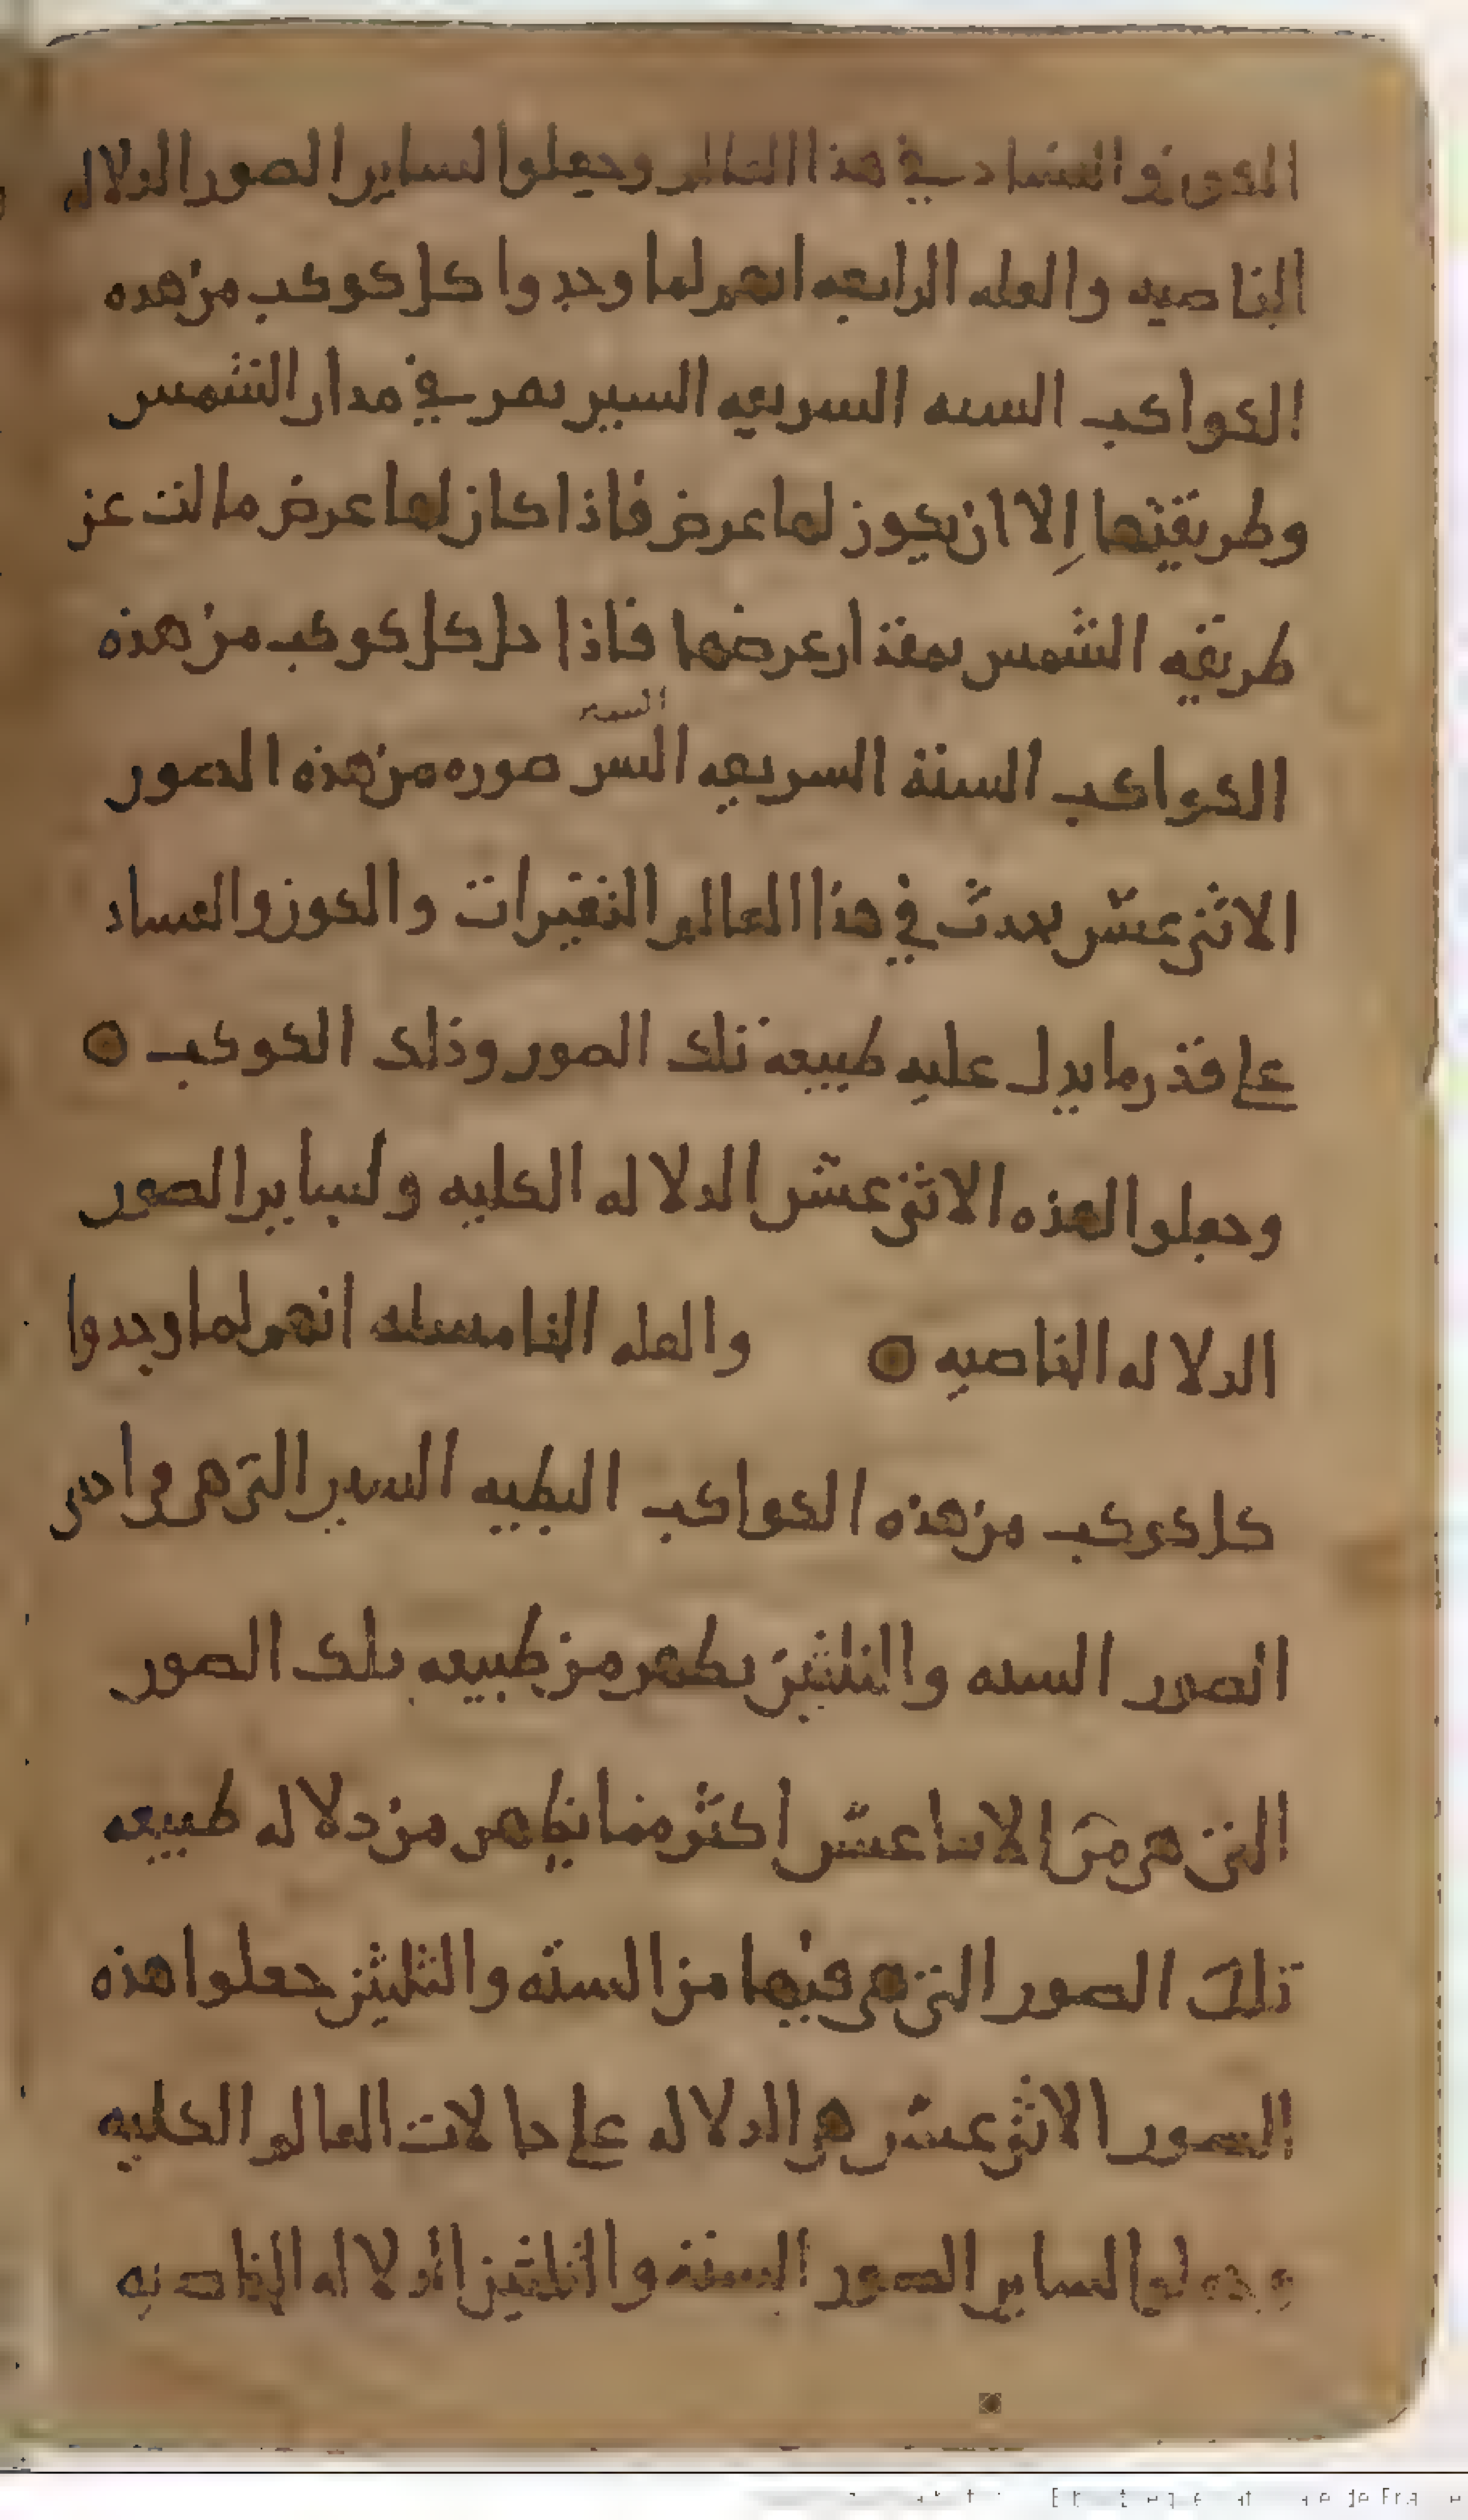 الكون والفساد في هذا العالم وجعلوا لساير الصور الدلاله
الخاصيه والعله الرابعه انهم لما وجدوا كل كوكب من هذه
الكواكب السته السريعه السير يمر في مدار الشمس
وطريقتها إلا ان يكون لها عرض فاذا كان لها عرض مالت عن
طريقه الشمس بمقدار عرضها فاذا حل كل كوكب من هذه
السير
الكواكب الستة السريعه السر صوره من هذه الصور
الاثني عشر يحدث في هذا العالم التغيرات والكون والفساد
على قدر ما يدل عليه طبيعة تلك الصور وذلك الكوكب ○
وجعلوا لهذه الاثني عشر الدلاله الكليه ولساير الصور
الدلاله الخاصيه ○ والعله الخامسه انهم لما وجدوا
كل كوكب من هذه الكواكب البطيه السير التي هي في
الصور السته والثلثين يظهر من طبيعه تلك الصور
التي هي من الاثنا عشر اكثر مما يظهر من دلاله طبيعه
تلك الصور التي هي فيها من السته والثلثين جعلوا هذه
الصور الاثني عشر هي الدلاله على حالات العالم الكليه
وجعلوا لساير الصور الستة والثلثين الدلاله الخاصيه